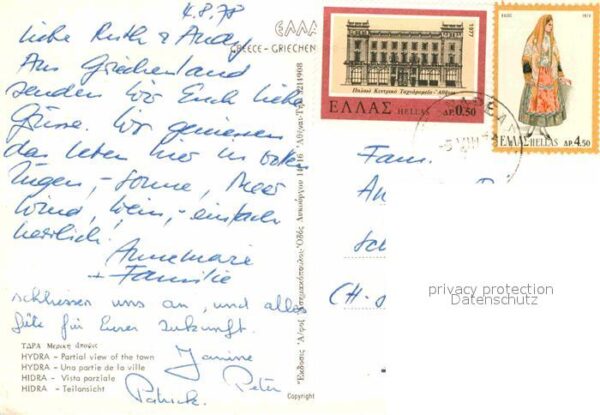 4.8.78
Liebe Ruth & Andy
Aus Griechenland
senden wir Euch liebe
Grüsse. Wir geniessen
das Leben hier in vollen
Zügen, - Sonne, Meer
Wind, Wein, - einfach
herrlich!
Annemarie
+ Familie
schliessen uns an, und alles
gute für Eure Zukunft.
Janine
Peter
Patrick.
ΥΔΡΑ Μερική άποψις
HYDRA - Partial view of the town
HYDRA - Une partie de la ville
HIDRA - Vista parziale
HIDRA - Teilansicht
Copyright
ΕΛΛΑ
GREECE - GRIECHEN
1977
Παλαιό Κεντρικό Ταχυδρομείο - Αθήνα
ΕΛΛΑΣ HELLAS ΔΡ. 0.50
ΕΛΛΑΣ HELLAS ΔΡ. 4.50
Fam.
CH-
privacy protection
Datenschutz